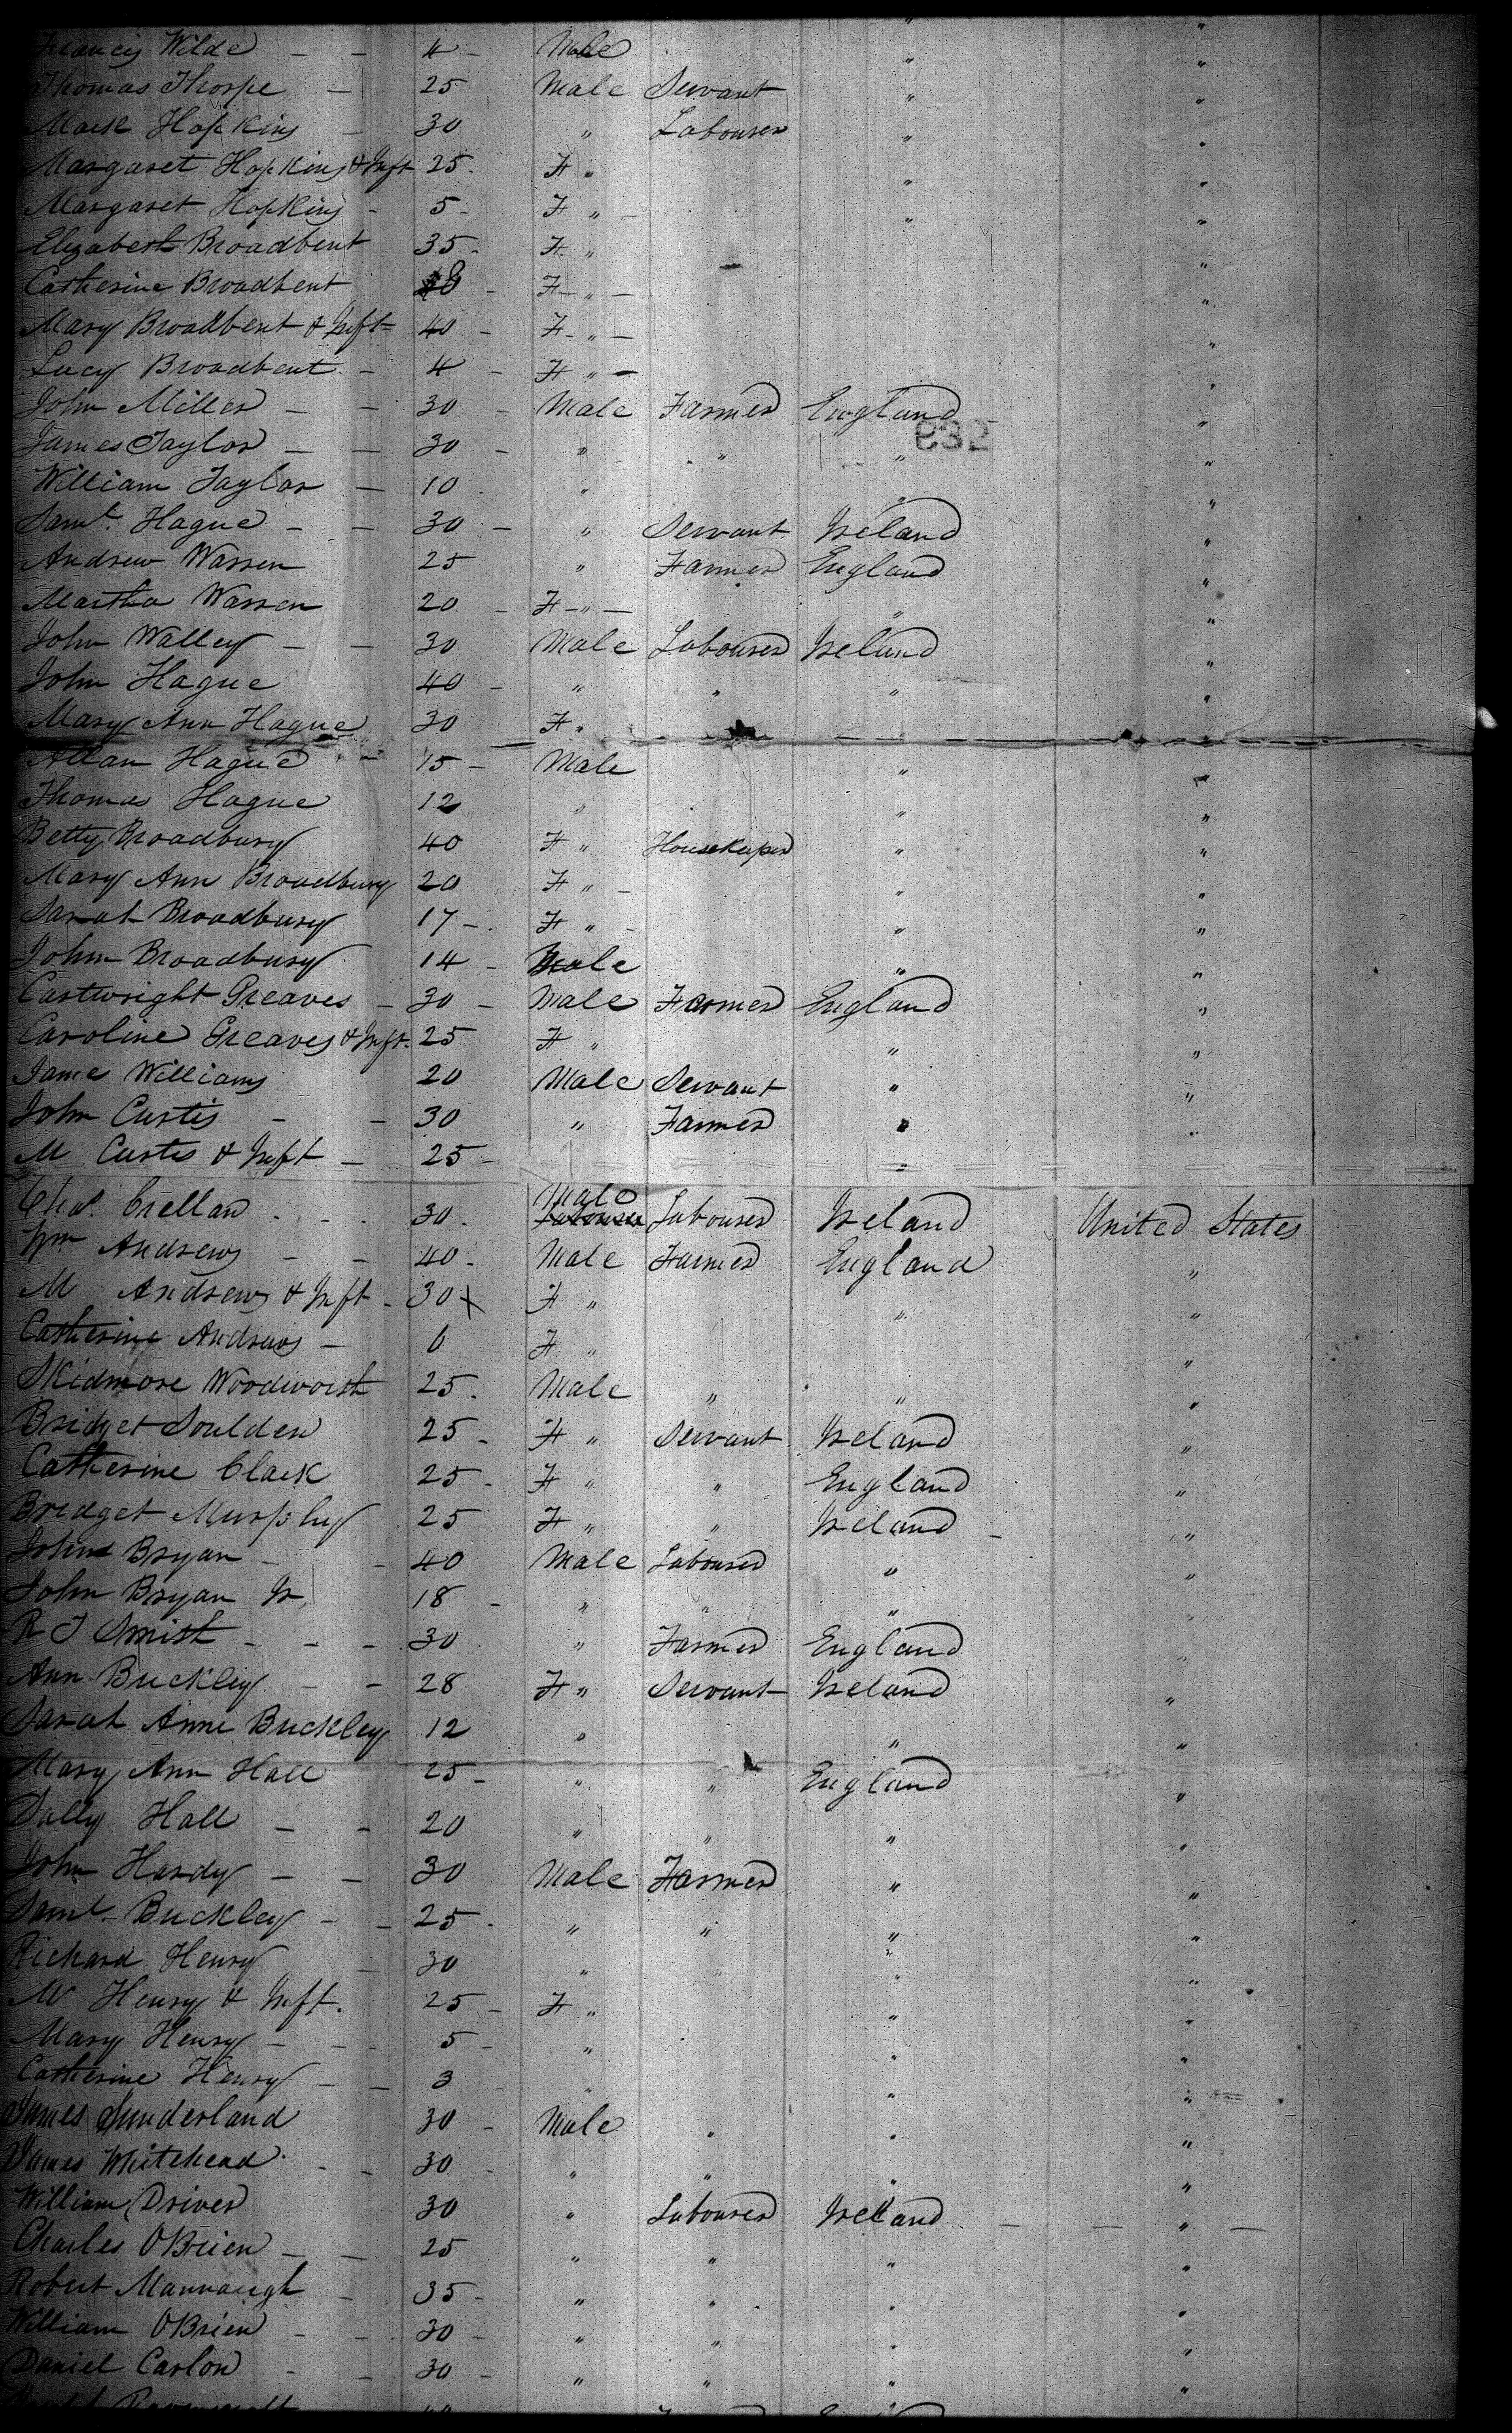 Francis Wilde - - 4 - Male " "
Thomas Thorpe - 25 Male Servant " "
Mark Hopkins - 30 " Labourer " "
Margaret Hopkins & Inft 25 - F " " "
Margaret Hopkins - 5 - F " - " "
Elizabeth Broadbent 35 - F " "
Catherine Broadbent - F - " - "
Mary Broadbent & Inft - 40 - F - " - "
Lucy Broadbent - 4 - F " - "
John Miller - - 30 - Male Farmer England "
James Taylor - - 30 - " " " "
William Taylor - 10 " " "
Saml. Hague - - 30 - " Servant Ireland "
Andrew Warren 25 " Farmer England "
Martha Warren 20 - F - " - " "
John Walley - - 30 Male Labourer Ireland "
John Hague 40 - " " " "
Mary Ann Hague 30 F " "
Allan Hague - 15 - Male " "
Thomas Hague 12 " " "
Betty Broadbury 40 F " Housekeeper " "
Mary Ann Broadbury 20 F " - " "
Sarah Broadbury 17 - F " - " "
John Broadbury 14 - Male " "
Cartwright Greaves - 30 - Male Farmer England "
Caroline Greaves & Inft. 25 F " " "
James Williams 20 Male Servant " "
John Curtis - - 30 " Farmer " "
M Curtis & Inft - 25 - "
Chas. Crellan 30 Male Labourer Ireland United States
Wm Andrews - - 40 - Male Farmer England "
M Andrews & Inft - 30 F " " "
Catherine Andrews - 6 F " "
Skidmore Woodworth 25 Male " " "
Bridget Soulden 25 - F " Servant Ireland "
Catherine Clark 25 - F " " England "
Bridget Murphy 25 F " " Ireland - "
John Bryan - - 40 Male Labourer " "
John Bryan Jr 18 - " " " "
R J Smith - - - 30 " Farmer England "
Ann Buckley - - 28 F " Servant Ireland "
Sarah Anne Buckley 12 " " "
Mary Ann Hall 25 - " " England "
Sally Hall - - 20 " " " "
John Hardy - - 30 Male Farmer " "
Saml. Buckley - - 25 - " " " "
Richard Henry - 30 " " "
M Henry & Inft. 25 - F " " "
Mary Henry - - 5 - " " "
Catherine Henry - - 3 " " "
James Sunderland 30 - Male " " "
James Whitehead - - 30 - " " " "
William Driver 30 " Labourer Ireland - - " -
Charles OBrien - - 25 " " " "
Robert Mannaugh - 35 - " " " "
William OBrien - - 30 - " " " "
Daniel Carlon - - 30 - " " " "